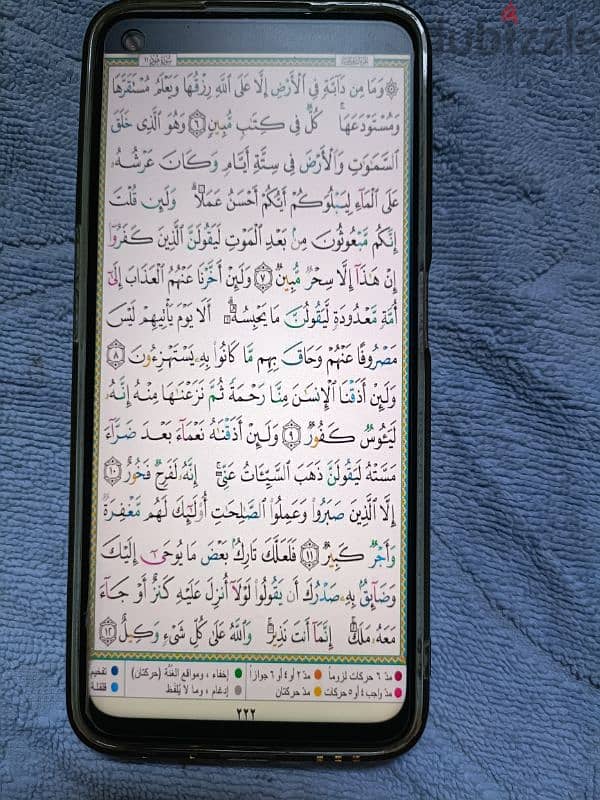 dubizzle
۞ وَمَا مِن دَآبَّةٍ فِي ٱلۡأَرۡضِ إِلَّا عَلَى ٱللَّهِ رِزۡقُهَا وَيَعۡلَمُ مُسۡتَقَرَّهَا
وَمُسۡتَوۡدَعَهَاۚ كُلّٞ فِي كِتَٰبٖ مُّبِينٖ ٦ وَهُوَ ٱلَّذِي خَلَقَ
ٱلسَّمَٰوَٰتِ وَٱلۡأَرۡضَ فِي سِتَّةِ أَيَّامٖ وَكَانَ عَرۡشُهُۥ
عَلَى ٱلۡمَآءِ لِيَبۡلُوَكُمۡ أَيُّكُمۡ أَحۡسَنُ عَمَلٗاۗ وَلَئِن قُلۡتَ
إِنَّكُم مَّبۡعُوثُونَ مِنۢ بَعۡدِ ٱلۡمَوۡتِ لَيَقُولَنَّ ٱلَّذِينَ كَفَرُوٓاْ
إِنۡ هَٰذَآ إِلَّا سِحۡرٞ مُّبِينٞ ٧ وَلَئِنۡ أَخَّرۡنَا عَنۡهُمُ ٱلۡعَذَابَ إِلَىٰٓ
أُمَّةٖ مَّعۡدُودَةٖ لَّيَقُولُنَّ مَا يَحۡبِسُهُۥٓۗ أَلَا يَوۡمَ يَأۡتِيهِمۡ لَيۡسَ
مَصۡرُوفًا عَنۡهُمۡ وَحَاقَ بِهِم مَّا كَانُواْ بِهِۦ يَسۡتَهۡزِءُونَ ٨
وَلَئِنۡ أَذَقۡنَا ٱلۡإِنسَٰنَ مِنَّا رَحۡمَةٗ ثُمَّ نَزَعۡنَٰهَا مِنۡهُ إِنَّهُۥ
لَيَـُٔوسٞ كَفُورٞ ٩ وَلَئِنۡ أَذَقۡنَٰهُ نَعۡمَآءَ بَعۡدَ ضَرَّآءَ
مَسَّتۡهُ لَيَقُولَنَّ ذَهَبَ ٱلسَّيِّـَٔاتُ عَنِّيٓۚ إِنَّهُۥ لَفَرِحٞ فَخُورٌ ١٠
إِلَّا ٱلَّذِينَ صَبَرُواْ وَعَمِلُواْ ٱلصَّٰلِحَٰتِ أُوْلَٰٓئِكَ لَهُم مَّغۡفِرَةٞ
وَأَجۡرٞ كَبِيرٞ ١١ فَلَعَلَّكَ تَارِكُۢ بَعۡضَ مَا يُوحَىٰٓ إِلَيۡكَ
وَضَآئِقُۢ بِهِۦ صَدۡرُكَ أَن يَقُولُواْ لَوۡلَآ أُنزِلَ عَلَيۡهِ كَنزٌ أَوۡ جَآءَ
مَعَهُۥ مَلَكٌۚ إِنَّمَآ أَنتَ نَذِيرٞۚ وَٱللَّهُ عَلَىٰ كُلِّ شَيۡءٖ وَكِيلٌ ١٢
مدّ ٦ حركات لزوماً مدّ ٢ أو ٤ أو ٦ جوازاً إخفاء ، ومواقع الغُنَّة (حركتان) تفخيم
مدّ واجب ٤ أو ٥ حركات مدّ حركتان إدغام ، وما لا يُلفَظ قلقلة
٢٢٢